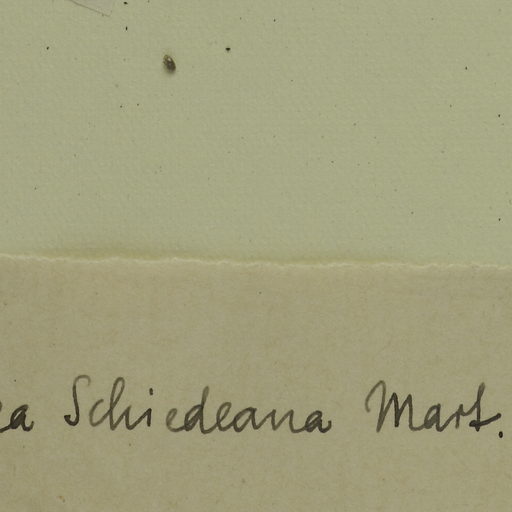 ea Schiedeana Mart.